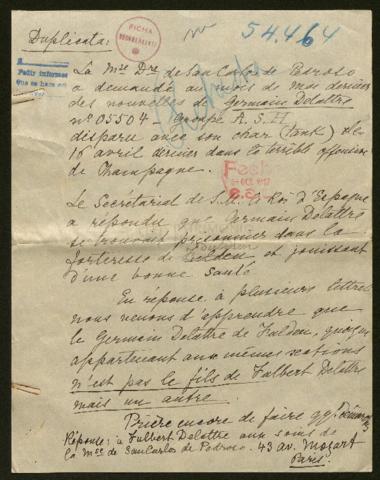 Duplicata:
FICHA
54.464
Pedir informes
La Mse Dre de San Carlos de Pedroso
a demandé au mois de Mai dernier
des nouvelles de Germain Delattre
no 05504 Groupe A.S.H
disparu avec son char (tank) le
16 avril dernier dans la terrible offensive
de Champagne.
Fech
OCT. 1917
Le Secrétariat de S.M. le Roi d'Espagne
a répondu que Germain Delattre
se trouvait prisonnier dans la
forteresse de et jouissait
d'une bonne santé
En réponse à plusieurs lettres
nous venons d'apprendre que
le Germain Delattre de quoique
appartenant aux mêmes sections
n'est pas le fils de Fulbert Delattre
mais un autre.
Prière encore de faire qq. démarches
Réponse: à Fulbert Delattre aux soins de
la Mse de San Carlos de Pedroso. 43 av. Mozart
Paris.